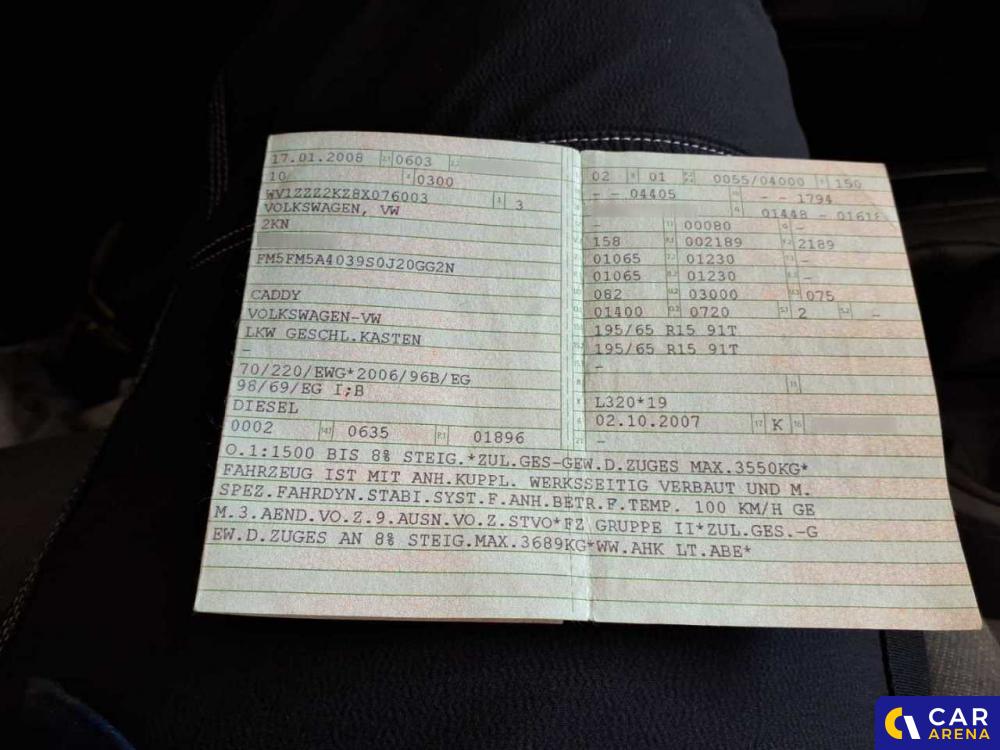 17.01.2008 0603
10 0300
WV1ZZZ2KZ8X076003 3
VOLKSWAGEN, VW
2KN
FM5FM5A4039S0J20GG2N
CADDY
VOLKSWAGEN-VW
LKW GESCHL.KASTEN
-
70/220/EWG*2006/96B/EG
98/69/EG I;B
DIESEL
0002 0635 01896
02 01 0055/04000 150
- - 04405 - - 1794
01448 - 01618
- 00080 -
158 002189 2189
01065 01230 -
01065 01230 -
082 03000 075
01400 0720 2 -
195/65 R15 91T
195/65 R15 91T
-
L320*19
02.10.2007 K
-
O.1:1500 BIS 8% STEIG.*ZUL.GES-GEW.D.ZUGES MAX.3550KG*
FAHRZEUG IST MIT ANH.KUPPL. WERKSSEITIG VERBAUT UND M.
SPEZ.FAHRDYN.STABI.SYST.F.ANH.BETR.F.TEMP. 100 KM/H GE
M.3.AEND.VO.Z.9.AUSN.VO.Z.STVO*FZ GRUPPE II*ZUL.GES.-G
EW.D.ZUGES AN 8% STEIG.MAX.3689KG*WW.AHK LT.ABE*
CAR
ARENA